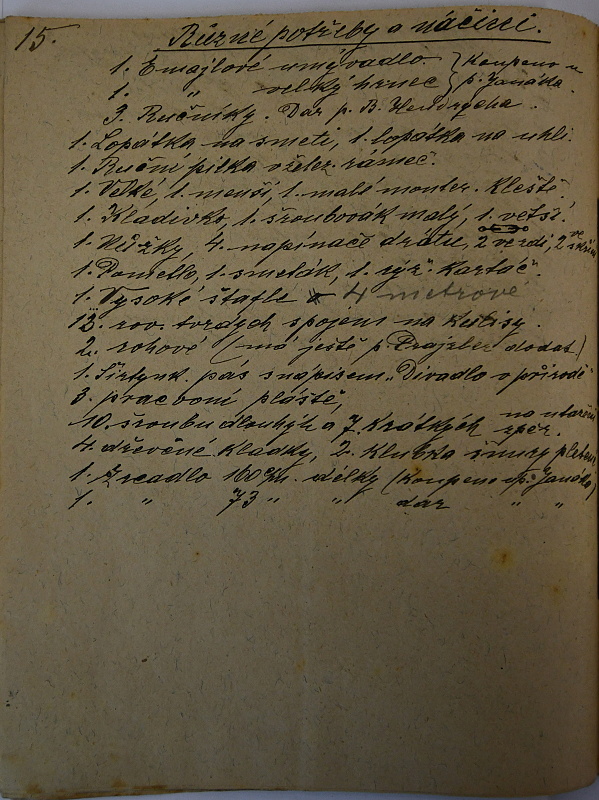 15. Různé potřeby a náčiní.
1. Emajlové umývadlo. } Koupeno u
1. " velký hrnec } p. Janáka.
3. Ručníky. Dar p. B. Hendrycha.
1. Lopátka na smetí, 1. lopátka na uhlí.
1. Ruční pilka v želez. rámec.
1. Velké, 1. menší, 1. malé monter. Kleště.
1. Kladivko, 1. šroubovák malý, 1. větší.
1. Nůžky, 4. napínače drátu, 2 2 ve
1. smeták, 1. rýž. Kartáč.
1. Vysoké štafle 4 metrové
12. rov. tvrdých spojení na Kulisy.
2. rohové (má ještě p. dodat)
1. Širtynk. pas s nápisem "Divadlo v přírodě"
3. pracovní pláště,
10. šroubů dlouhých a 7. Krátkých na
4. dřevěné Kladky, 2. Klubka šnury pletené
1. Zrcadlo 160 cm. délky (Koupeno u p. Janáka)
1. " 73 " " dar " "